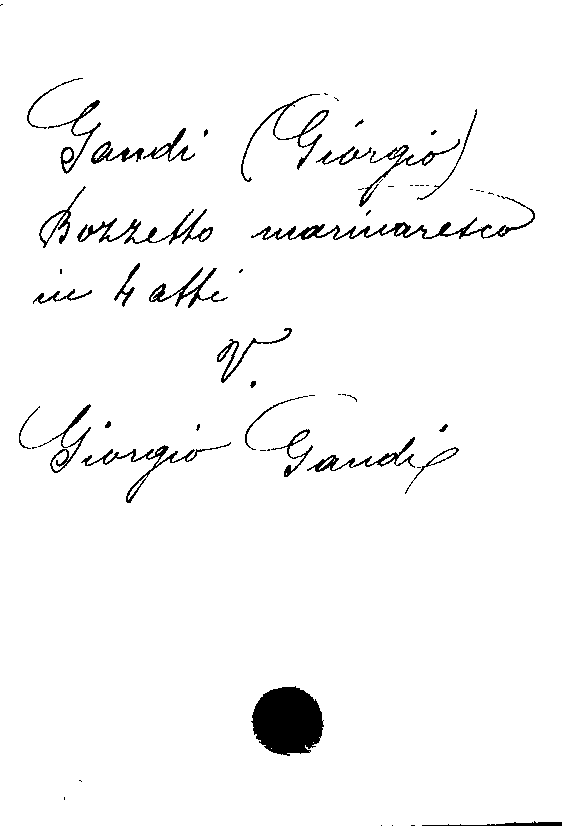 Gandi (Giorgio)
Bozzetto marinaresco
in 4 atti
V.
Giorgio Gandi